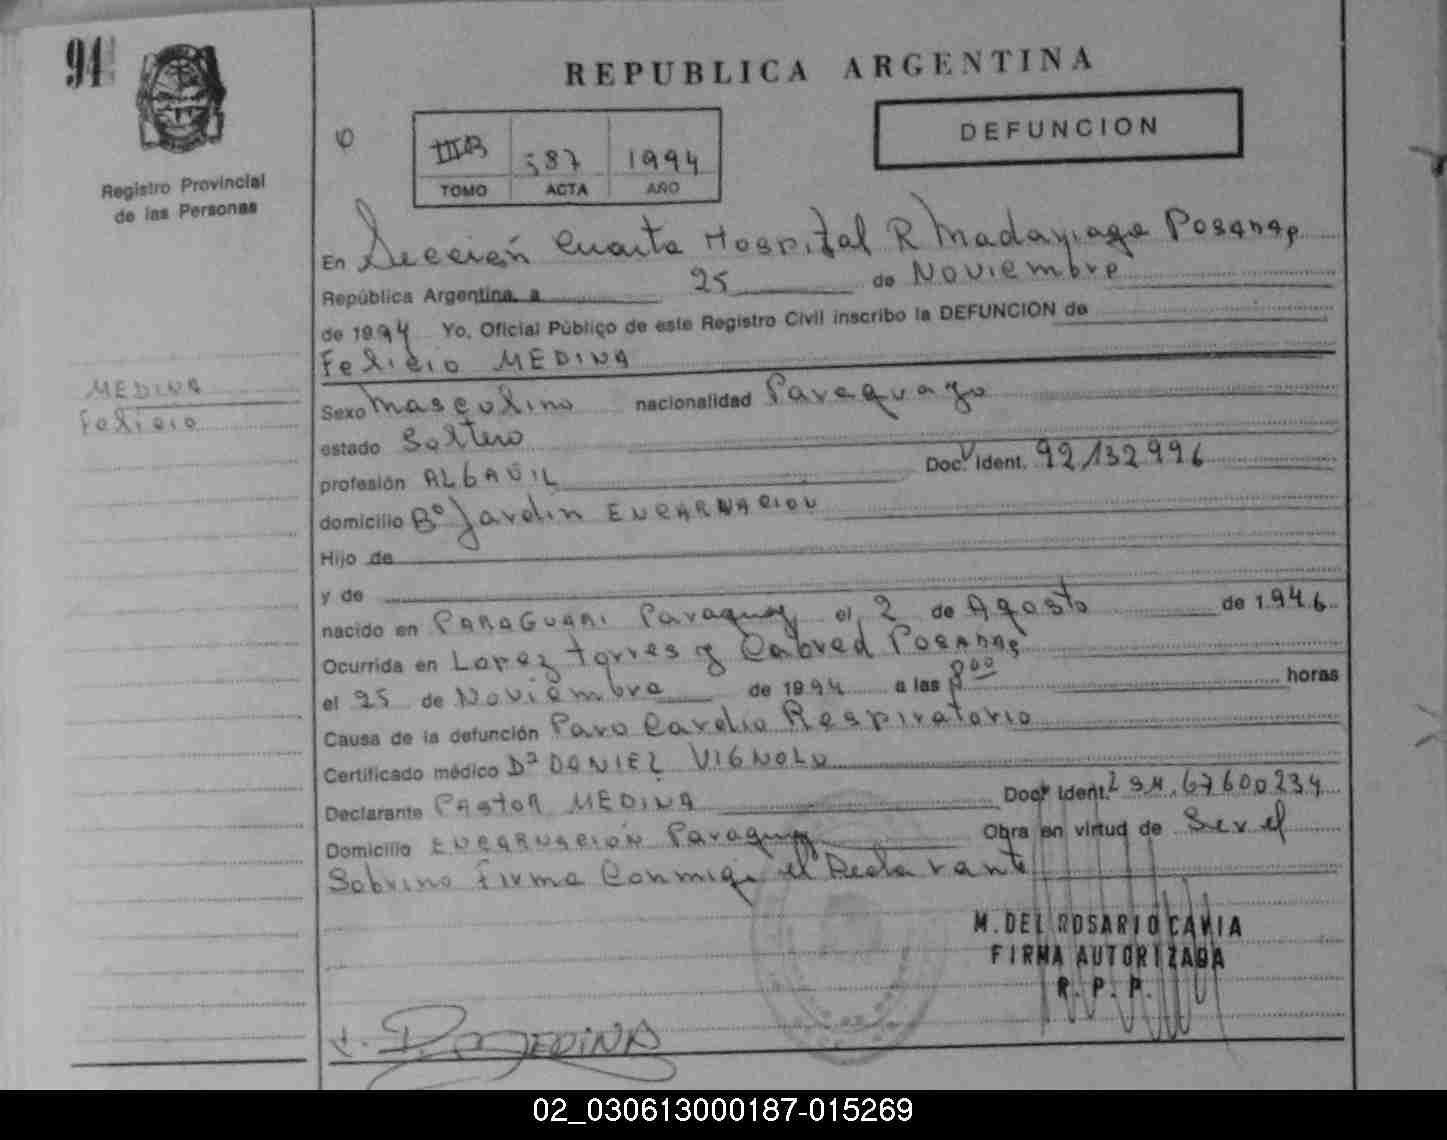 94
REPUBLICA ARGENTINA
DEFUNCION
IIIB 387 1994
TOMO ACTA AÑO
Registro Provincial
de las Personas
En Sección Cuarta Hospital R Madariaga Posadas
República Argentina, a 25 de Noviembre
de 1994 Yo, Oficial Público de este Registro Civil inscribo la DEFUNCION de
Felicio MEDINA
MEDINA
Felicio
Sexo Masculino nacionalidad Paraguayo
estado Soltero
profesión ALBAÑIL Doc. Ident. 92132996
domicilio Bº Jardin ENCARNACION
Hijo de
y de
nacido en PARAGUARI Paraguay el 2 de Agosto de 1946
Ocurrida en Lopez torres y Cabred POSADAS
el 25 de Noviembre de 1994 a las 8⁰⁰ horas
Causa de la defunción Paro Cardio Respiratorio
Certificado médico Dº DANIEL VIGNOLO
Declarante PASTOR MEDINA Doc. Ident. 67600234
Domicilio ENCARNACIÓN Paraguay Obra en virtud de Ser el
Sobrino firma Conmigo el Declarante
M. DEL ROSARIO CAVIA
FIRMA AUTORIZADA
R. P. P.
P. MEDINA
02_030613000187-015269